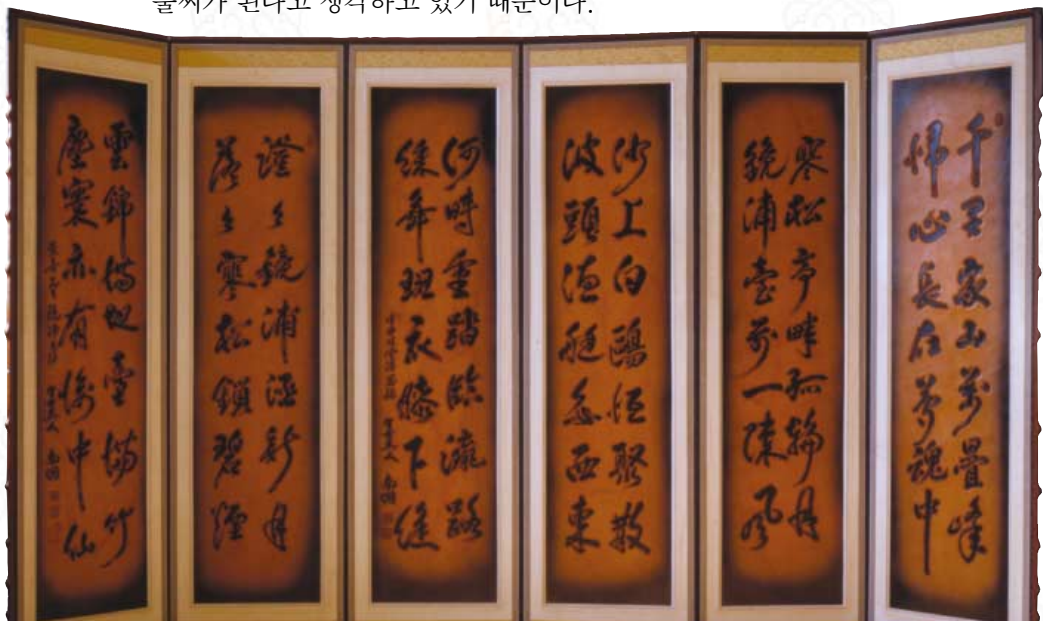 불씨가 된다고 생각하고 있기 때문이다.
千里家山萬疊峯
歸心長在夢魂中
寒松亭畔孤輪月
鏡浦臺前一陣風
沙上白鷗恒聚散
波頭漁艇每西東
何時重踏臨瀛路
綵舞斑衣膝下縫
澄々鏡浦涵新月
落々寒松鎖碧煙
雲錦滿地臺滿竹
塵寰亦有海中仙